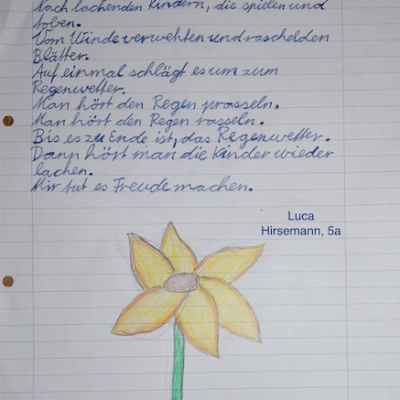 Nach lachenden Kindern, die spielen und
toben.
Vom Winde verwehten und raschelden
Blätter.
Auf einmal schlägt es um zum
Regenwetter.
Man hört den Regen prasseln.
Man hört den Regen rasseln.
Bis es zu Ende ist, das Regenwetter.
Dann hört man die Kinder wieder
lachen.
Mir tut es Freude machen.
Luca
Hirsemann, 5a